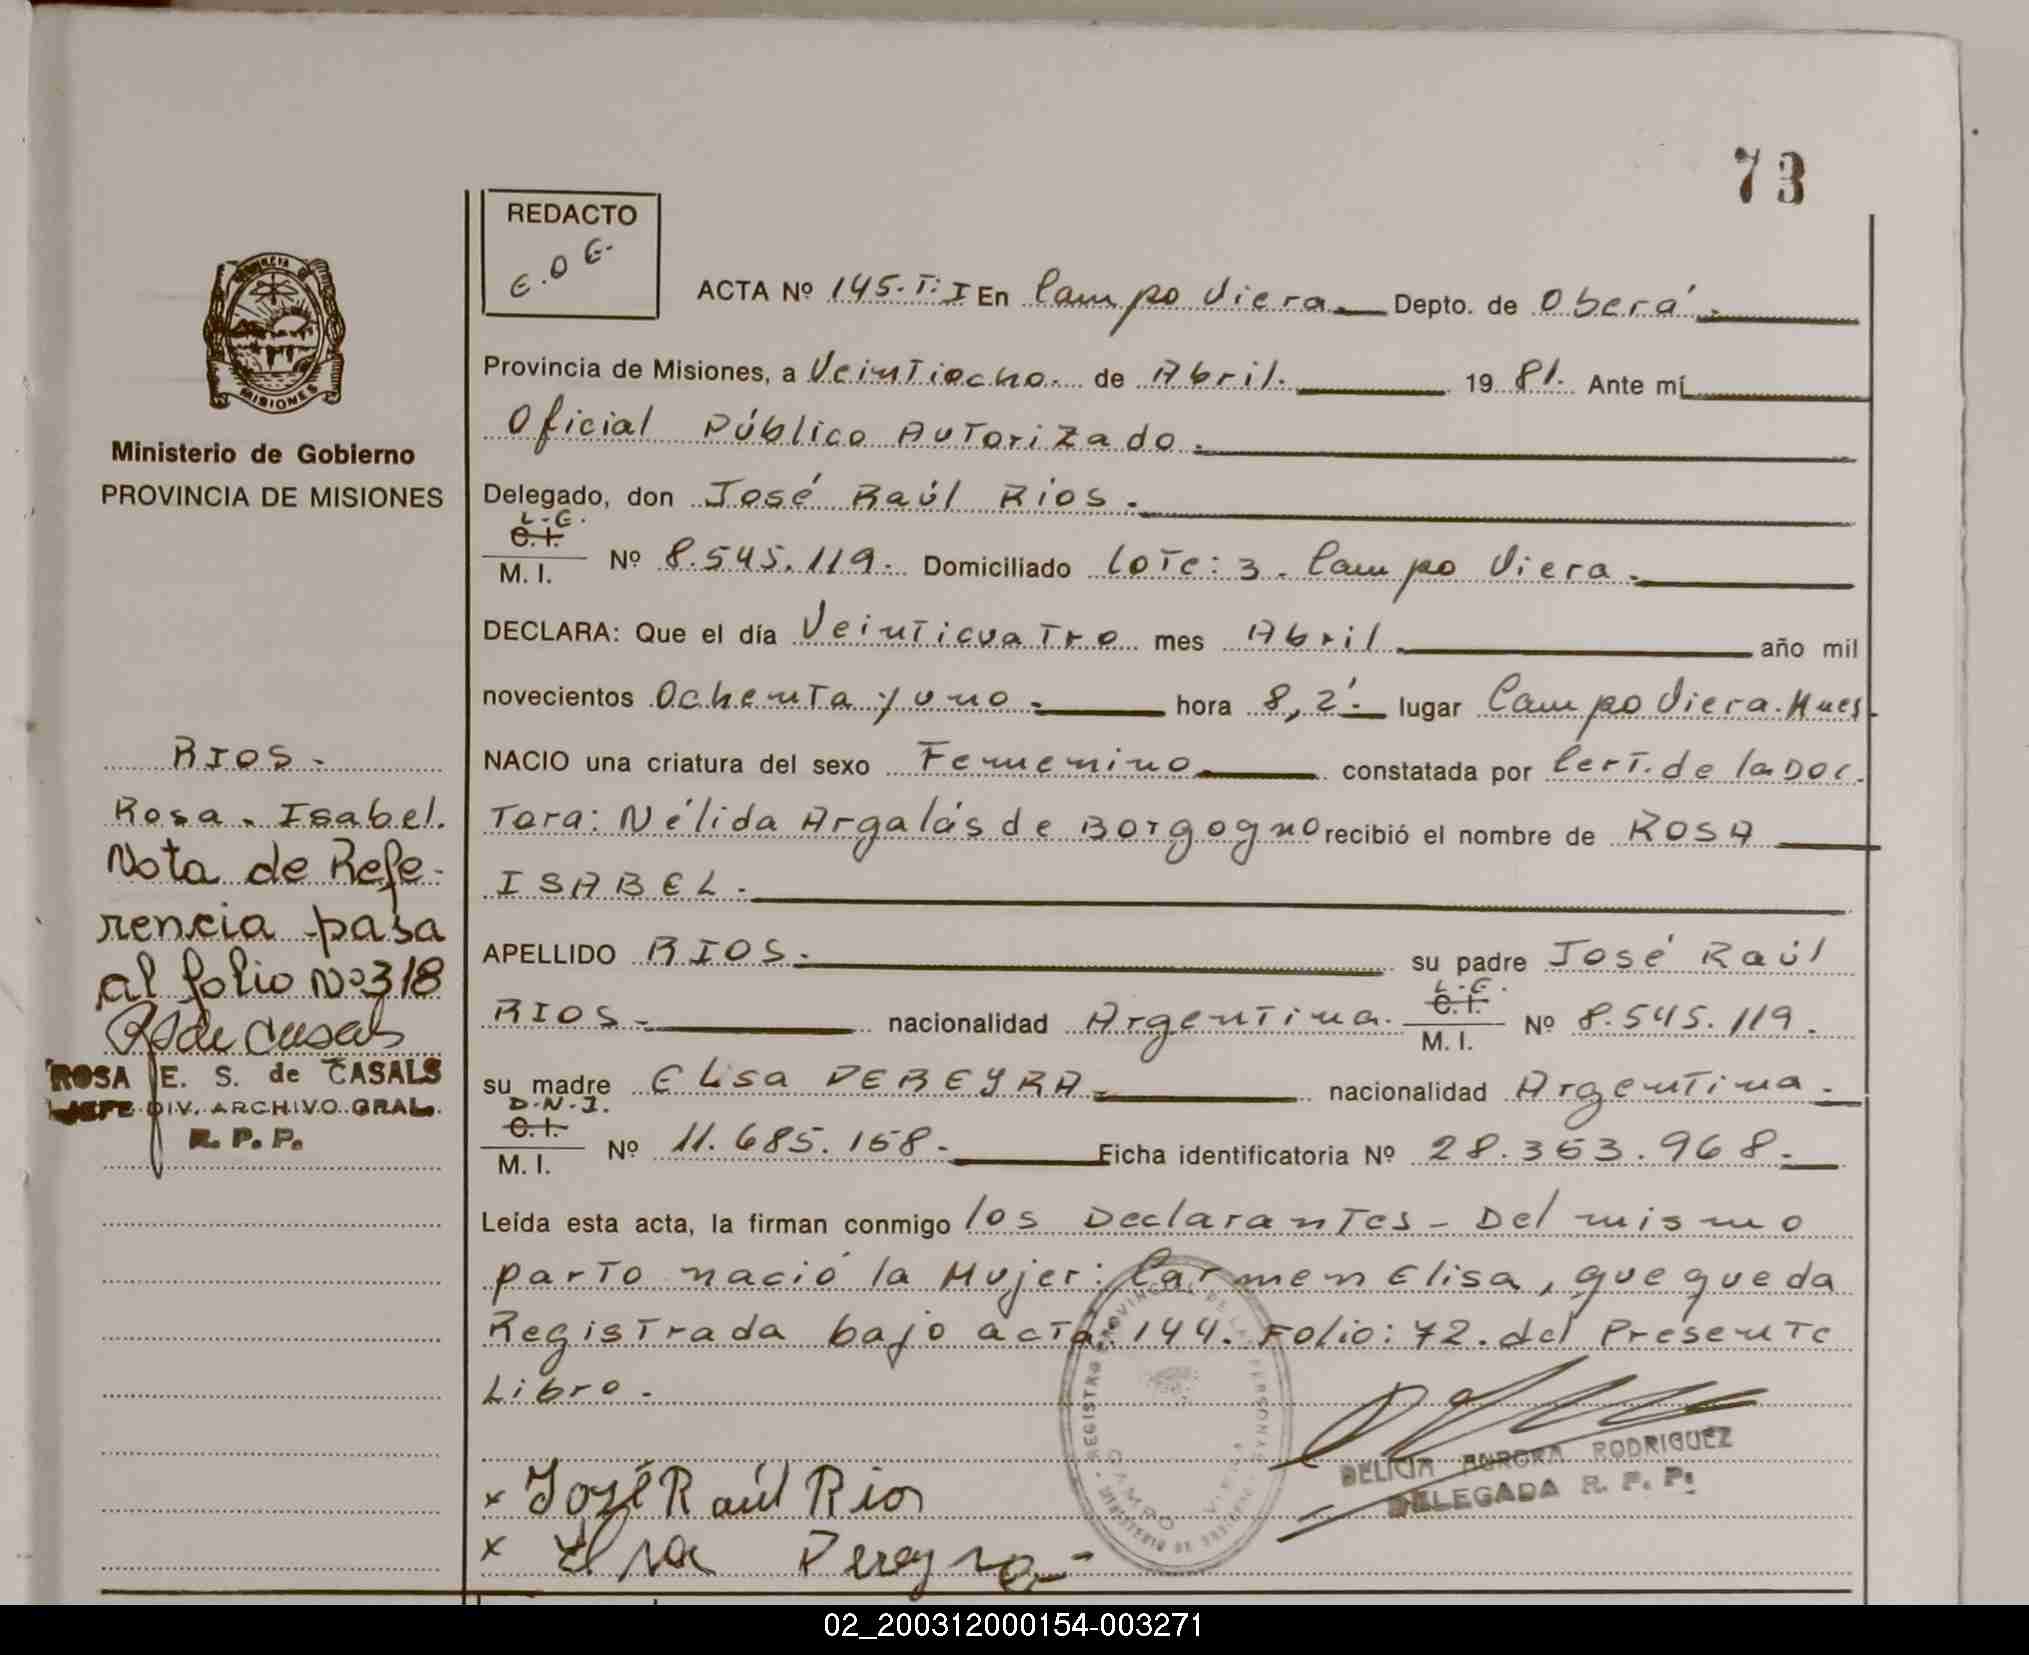 73
REDACTO
E.O.E.
ACTA Nº 145.T:I En Campo Viera. Depto. de Oberá.
Provincia de Misiones, a Veintiocho. de Abril. 19 81. Ante mí
Oficial Público Autorizado.
Delegado, don José Raúl Rios.
L.E.
C.I.
M. I. Nº 8.545.119. Domiciliado Lote: 3. Campo Viera.
DECLARA: Que el día Veinticuatro mes Abril año mil
novecientos Ochenta y uno. hora 8,2'. lugar Campo Viera. Mnes
NACIO una criatura del sexo Femenino constatada por Cert. de la Doc.
Tora: Nélida Argalás de Borgogno recibió el nombre de ROSA
ISABEL.
APELLIDO RIOS. su padre José Raúl
L.E.
C.I.
RIOS. nacionalidad Argentina. M. I. Nº 8.545.119.
su madre Elisa PEREYRA. nacionalidad Argentina.
D.N.I.
C.I.
M. I. Nº 11.685.158. Ficha identificatoria Nº 28.353.968.
Leída esta acta, la firman conmigo los Declarantes - Del mismo
parto nació la Mujer: Carmen Elisa, que queda
Registrada bajo acta: 144. Folio: 72. del Presente
Libro.
x José Raúl Rios
x Elsa Pereyra
DELICIA AURORA RODRIGUEZ
DELEGADA R. P. P.
REGISTRO PROVINCIAL DE LAS PERSONAS
CAMPO VIERA
MINISTERIO DE GOBIERNO
PROVINCIA DE
MISIONES
Ministerio de Gobierno
PROVINCIA DE MISIONES
RIOS.
Rosa. Isabel.
Nota de Refe-
rencia pasa
al folio Nº 318
RSde Casals
ROSA E. S. de CASALS
JEFE DIV. ARCHIVO GRAL.
R. P. P.
02_200312000154-003271